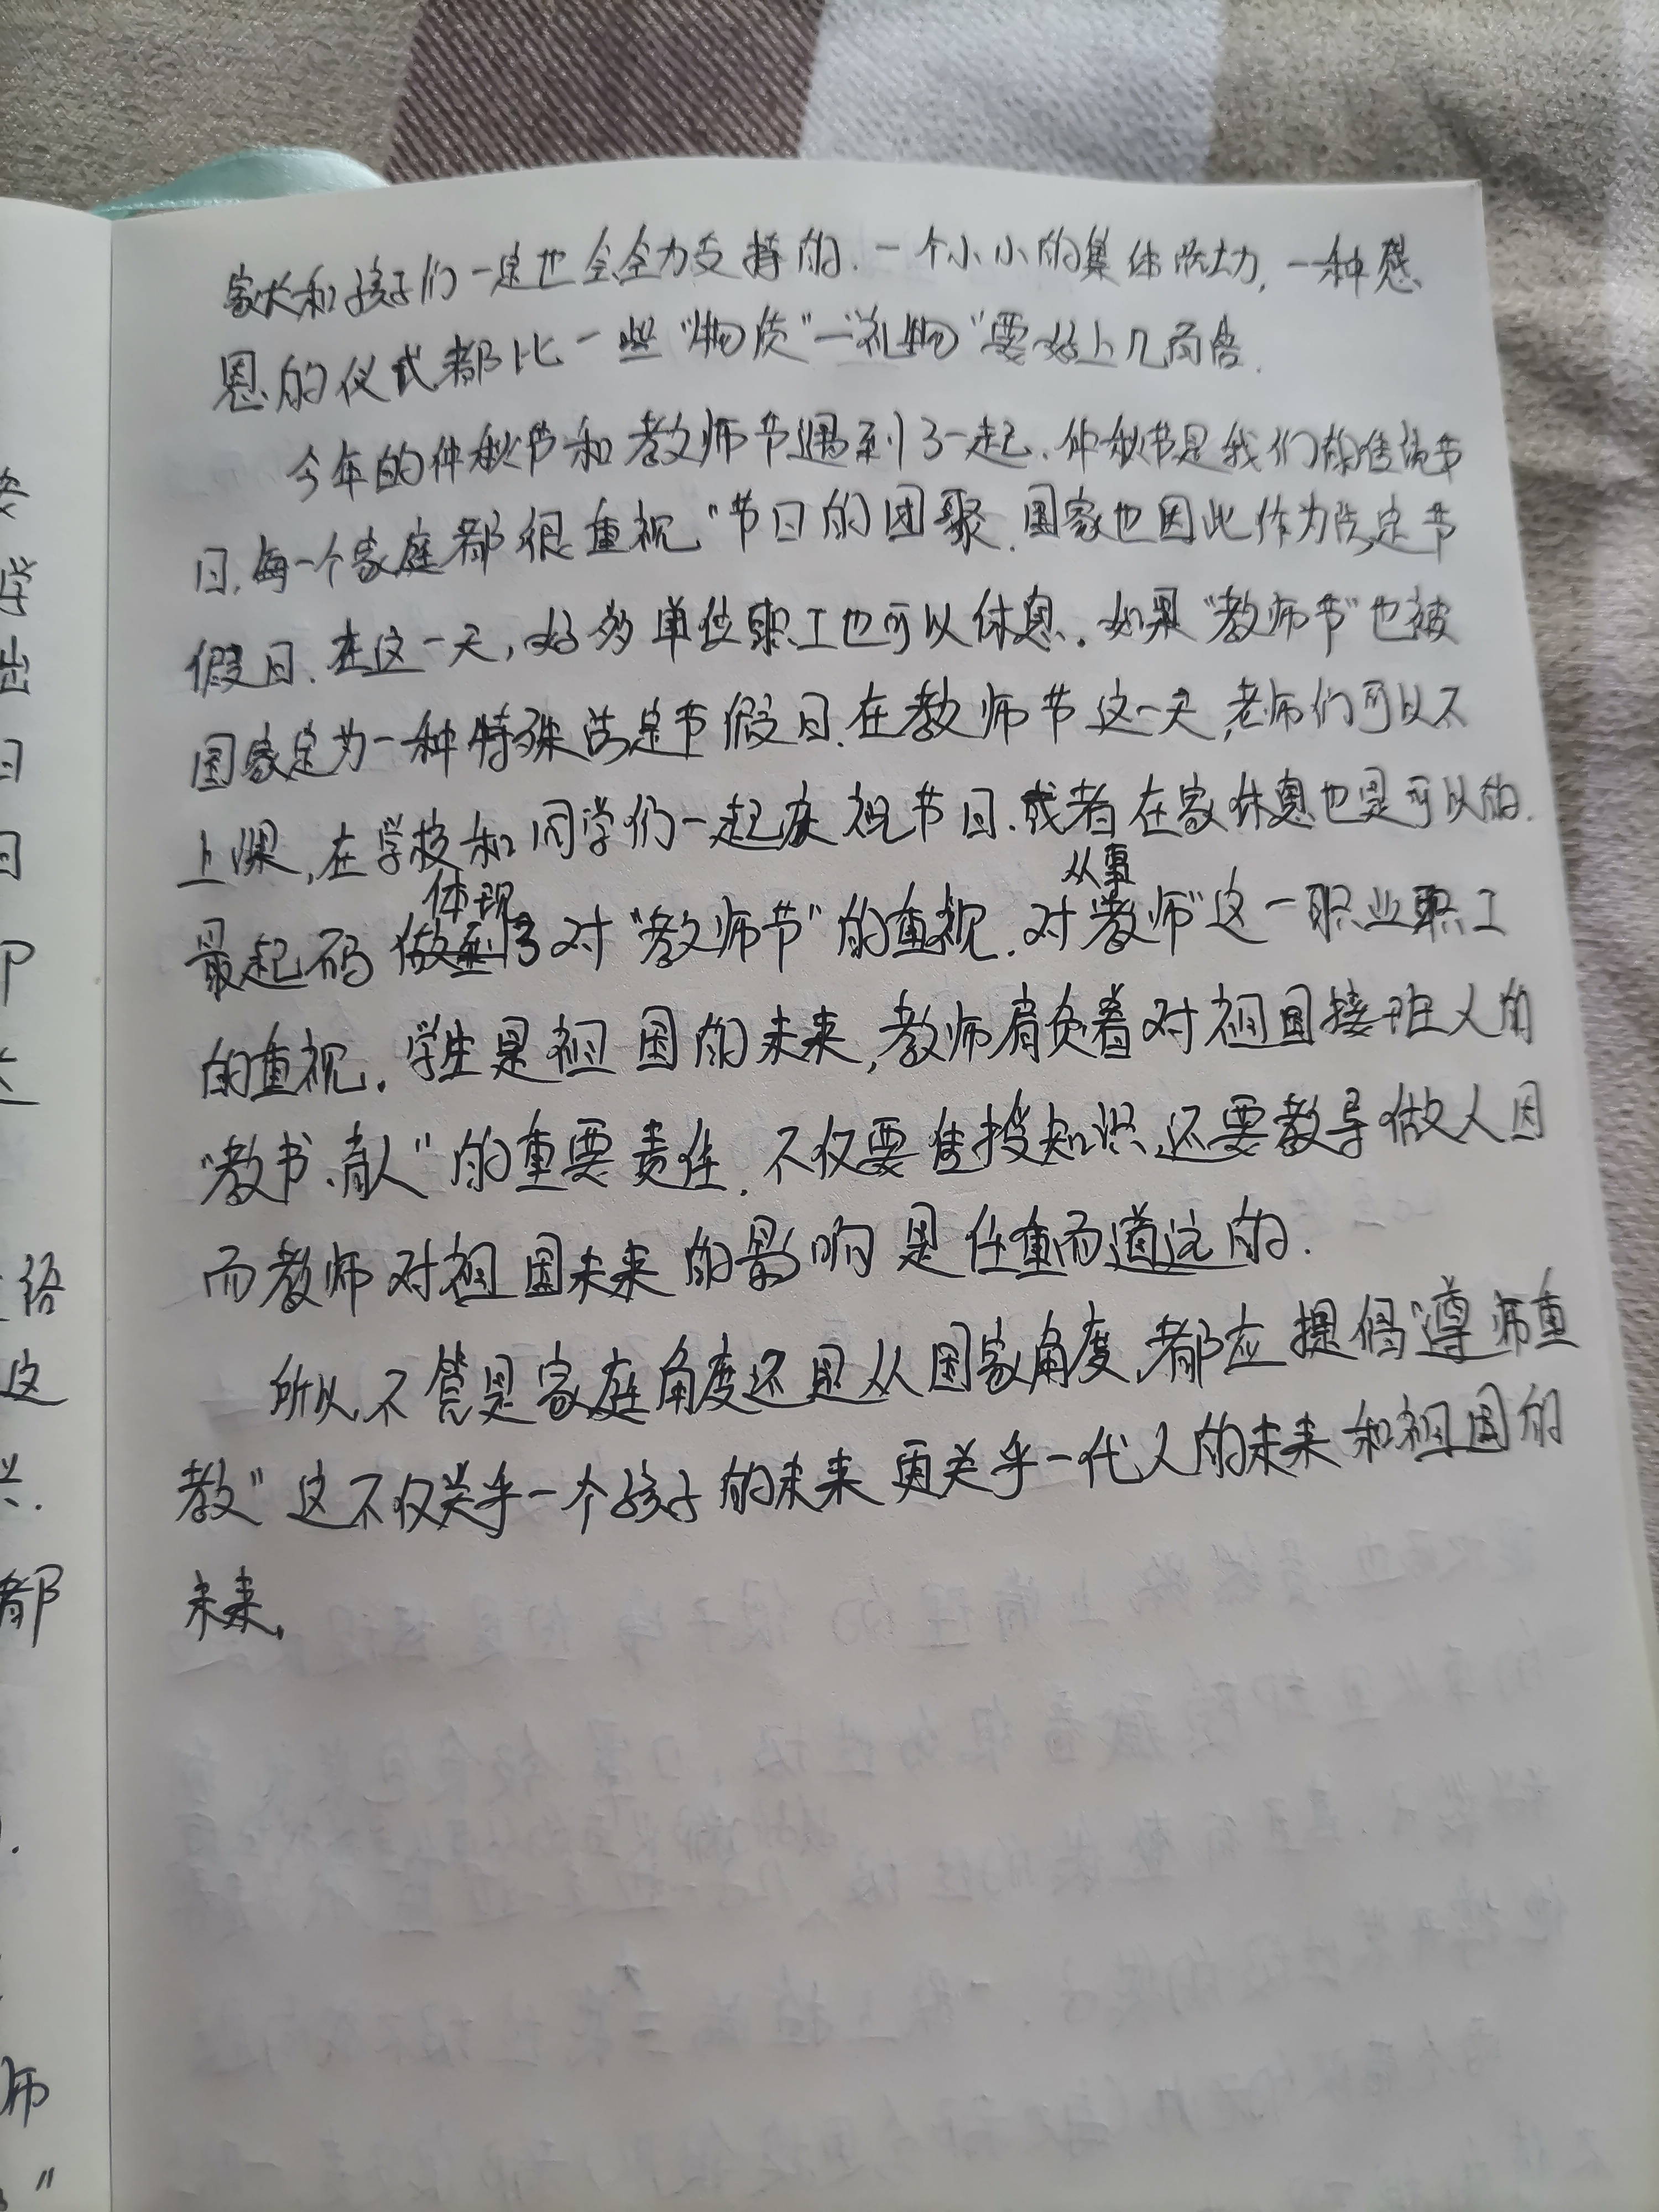 家长和孩子们一定也会全力支持的.一个小小的集体活动,一种感
恩的仪式都比一些"物质"—"礼物"要好上几百倍.
今年的仲秋节和教师节遇到了一起.仲秋节是我们的传统节
日.每一个家庭都很重视"节日的团聚.国家也因此作为法定节
假日.在这一天,好多单位职工也可以休息.如果"教师节"也被
国家定为一种特殊法定节假日.在教师节这一天,老师们可以不
上课,在学校和同学们一起庆祝节日.或者在家休息也是可以的.
体现 从事
最起码做到了对"教师节"的重视.对"教师"这一职业职工
的重视.学生是祖国的未来,教师肩负着对祖国接班人的
"教书、育人"的重要责任.不仅要传授知识、还要教导做人因
而教师对祖国未来的影响是任重而道远的.
所以,不管是家庭角度还是从国家角度,都应提倡"遵师重
教"这不仅关乎一个孩子的未来更关乎一代人的未来和祖国的
未来.